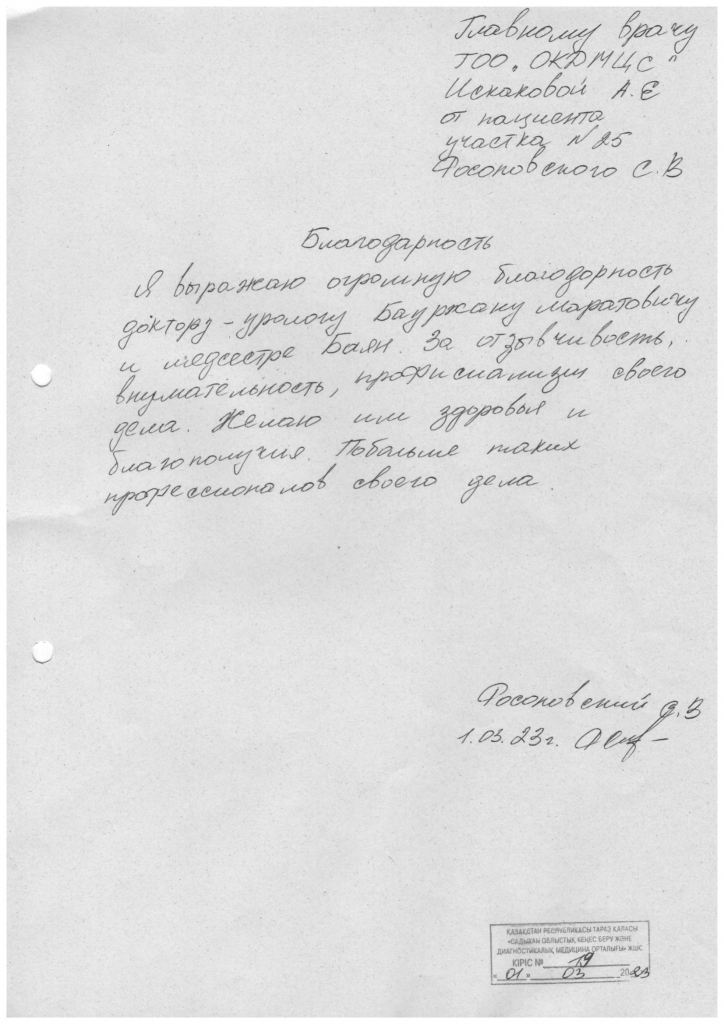 Главному врачу
ТОО „ОКДМЦС"
Искаковой А.Е
от пациента
участка N25
Фосоповского С.В
Благодарность
Я выражаю огромную благодорность
доктору-урологу Бауржану Маратовичу
и медсестре Баян. За отзывчивость,
внумательность, професиализм своего
дела. Желаю им здоровья и
благополучия. Побольше таких
профессионалов своего дела.
Фосоповский С.В
1.03.23г.
ҚАЗАҚСТАН РЕСПУБЛИКАСЫ ТАРАЗ ҚАЛАСЫ
«САДЫХАН ОБЛЫСТЫҚ КЕҢЕС БЕРУ ЖӘНЕ
ДИАГНОСТИКАЛЫҚ МЕДИЦИНА ОРТАЛЫҒЫ» ЖШС
КІРІС № 19
«01» 03 2023